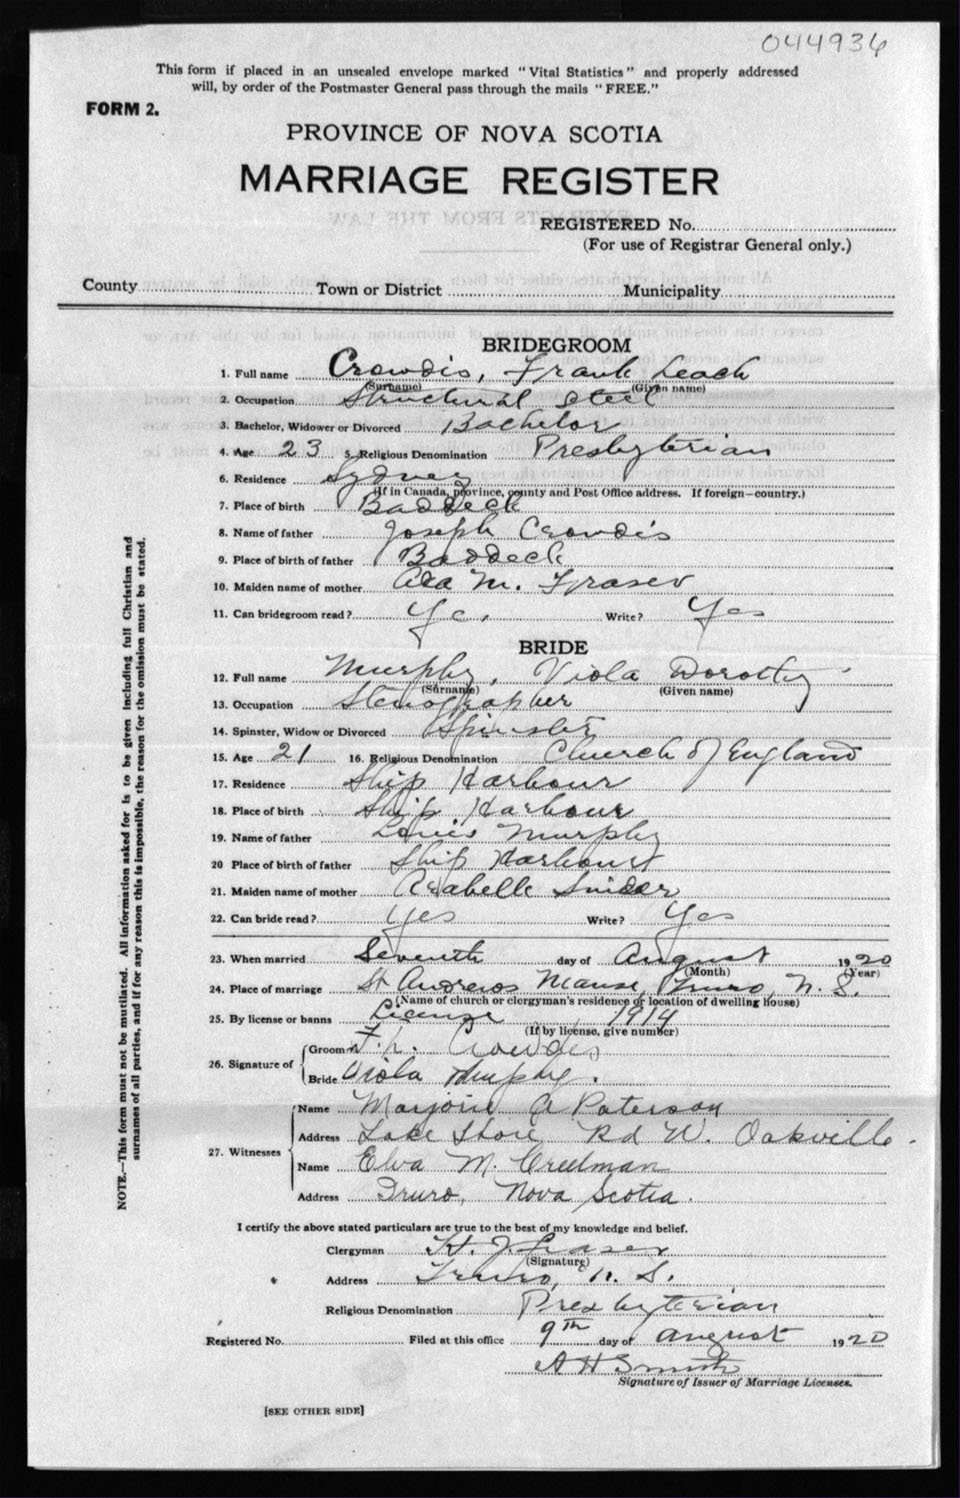 044936
This form if placed in an unsealed envelope marked "Vital Statistics" and properly addressed
will, by order of the Postmaster General pass through the mails "FREE."
FORM 2.
PROVINCE OF NOVA SCOTIA
MARRIAGE REGISTER
REGISTERED No.
(For use of Registrar General only.)
County Town or District Municipality
BRIDEGROOM
1. Full name Crowdis, Frank Leach
(Surname) (Given name)
2. Occupation Structural Steel
3. Bachelor, Widower or Divorced Bachelor
4. Age 23 5. Religious Denomination Presbyterian
6. Residence Sydney
(If in Canada, province, county and Post Office address. If foreign—country.)
7. Place of birth Baddeck
8. Name of father Joseph Crowdis
9. Place of birth of father Baddeck
10. Maiden name of mother Ada M. Fraser
11. Can bridegroom read? Yes Write? Yes
BRIDE
12. Full name Murphy, Viola Dorothy
(Surname) (Given name)
13. Occupation Stenographer
14. Spinster, Widow or Divorced Spinster
15. Age 21 16. Religious Denomination Church of England
17. Residence Ship Harbour
18. Place of birth Ship Harbour
19. Name of father Louis Murphy
20 Place of birth of father Ship Harbour
21. Maiden name of mother Arabella
22. Can bride read? Yes Write? Yes
23. When married Seventh day of August 1920
(Month) (Year)
24. Place of marriage St Andrews Manse, Truro, N. S.
(Name of church or clergyman's residence or location of dwelling house)
25. By license or banns License 1914
(If by license, give number)
26. Signature of Groom F. L. Crowdis
Bride Viola Murphy.
27. Witnesses Name Marjorie A Paterson
Address Lake Shore Rd W. Oakville.
Name Elva M. Creelman
Address Truro, Nova Scotia.
I certify the above stated particulars are true to the best of my knowledge and belief.
Clergyman H. J. Fraser
(Signature)
Address Truro, N. S.
Religious Denomination Presbyterian
Registered No. Filed at this office 9th day of August 1920
A H Smith
Signature of Issuer of Marriage Licenses.
[SEE OTHER SIDE]
NOTE.—This form must not be mutilated. All information asked for is to be given including full Christian and
surnames of all parties, and if for any reason this is impossible, the reason for the omission must be stated.